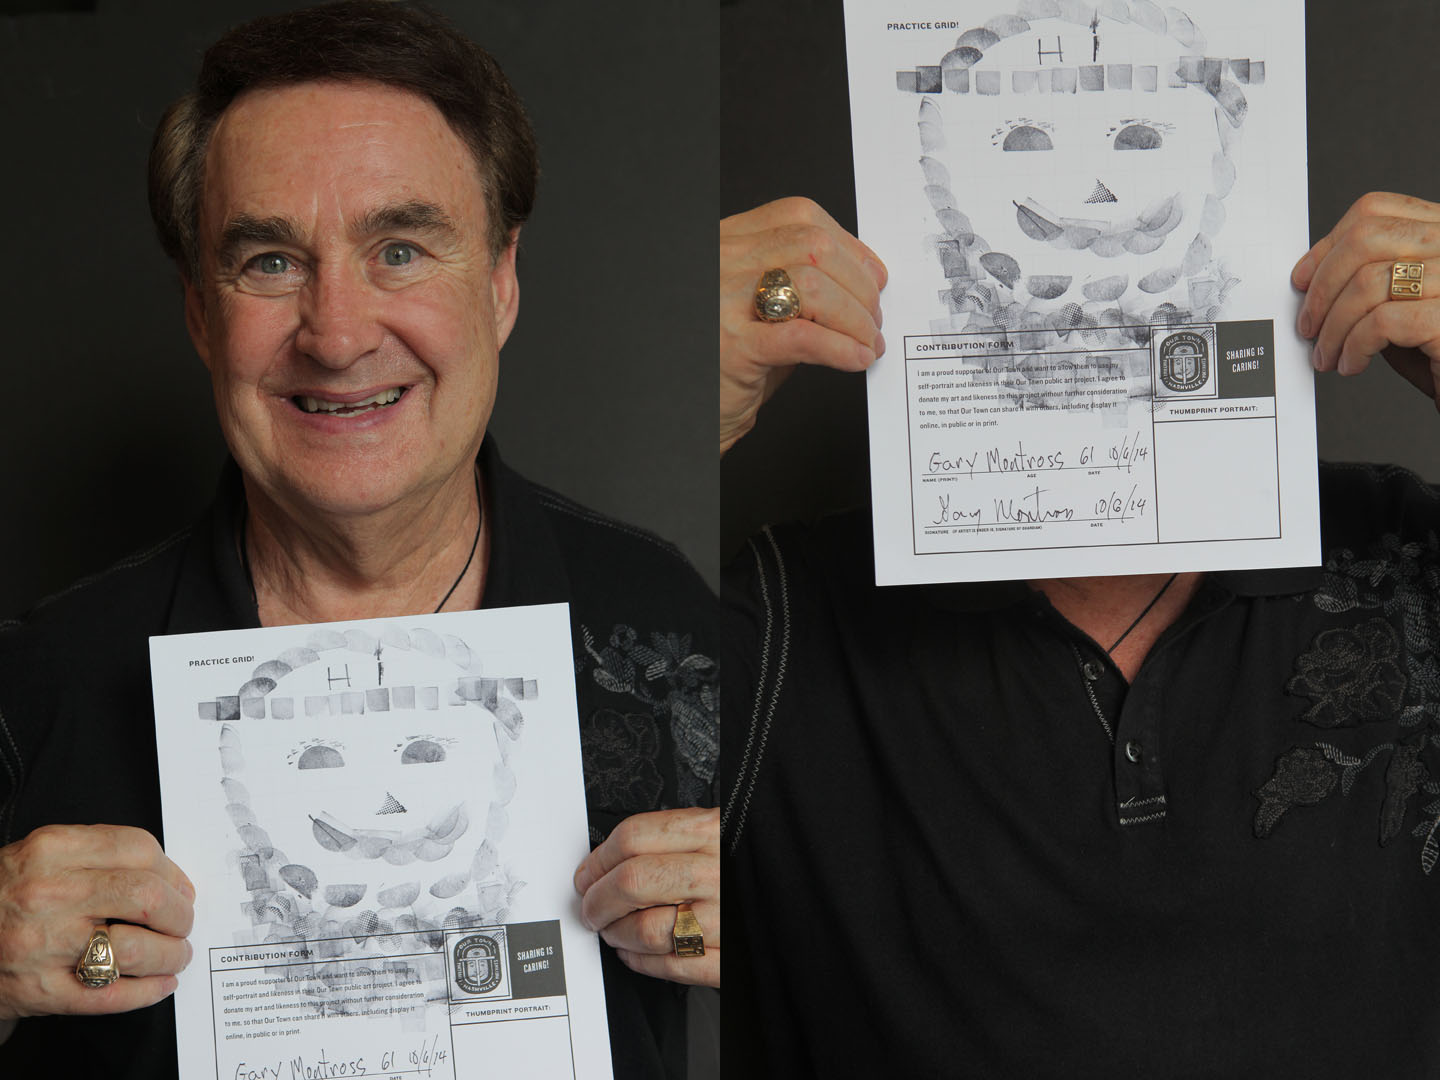 PRACTICE GRID!
HI
CONTRIBUTION FORM
I am a proud supporter of Our Town and want to allow them to use my
self-portrait and likeness in their Our Town public art project. I agree to
donate my art and likeness to this project without further consideration
to me, so that Our Town can share it with others, including display it
online, in public or in print.
OUR TOWN
NASHVILLE
SHARING IS
CARING!
THUMBPRINT PORTRAIT:
Gary Montross 61 10/6/14
DATE
PRACTICE GRID!
HI
CONTRIBUTION FORM
I am a proud supporter of Our Town and want to allow them to use my
self-portrait and likeness in their Our Town public art project. I agree to
donate my art and likeness to this project without further consideration
to me, so that Our Town can share it with others, including display it
online, in public or in print.
OUR TOWN
NASHVILLE
SHARING IS
CARING!
THUMBPRINT PORTRAIT:
Gary Montross 61 10/6/14
NAME (PRINT) AGE DATE
Gary Montross 10/6/14
SIGNATURE (IF ARTIST IS UNDER 18, SIGNATURE OF GUARDIAN) DATE